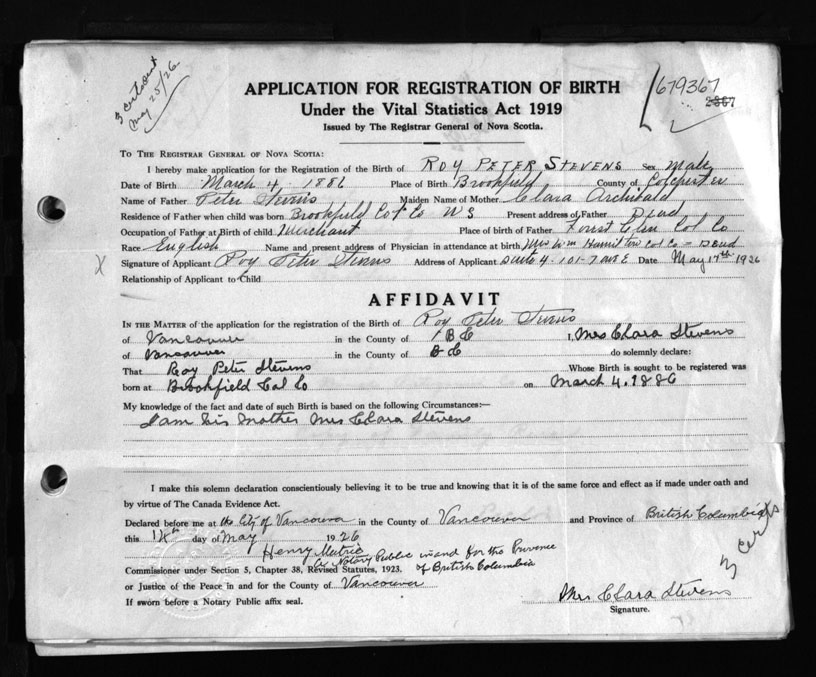 3 certs sent
May 25/26
679367
2867
APPLICATION FOR REGISTRATION OF BIRTH
Under the Vital Statistics Act 1919
Issued by The Registrar General of Nova Scotia.
To The Registrar General of Nova Scotia:
I hereby make application for the Registration of the Birth of Roy Peter Stevens Sex Male
Date of Birth March 4. 1886 Place of Birth Brookfield County of Colchester
Name of Father Peter Stevens Maiden Name of Mother Clara Archibald
Residence of Father when child was born Brookfield Col Co N S Present address of Father Dead
Occupation of Father at Birth of child Merchant Place of birth of Father Forest Glen Col Co
Race English Name and present address of Physician in attendance at birth Mrs Wm Hamilton Col Co = Dead
X Signature of Applicant Roy Peter Stevens Address of Applicant Suite 4. 101-7 Ave E Date May 17th 1926
Relationship of Applicant to Child
AFFIDAVIT
In the Matter of the application for the registration of the Birth of Roy Peter Stevens
of Vancouver in the County of B C I, Mrs Clara Stevens
of Vancouver in the County of B C do solemnly declare:
That Roy Peter Stevens Whose Birth is sought to be registered was
born at Brookfield Col Co on March 4. 1886
My knowledge of the fact and date of such Birth is based on the following Circumstances:—
I am his mother Mrs Clara Stevens
I make this solemn declaration conscientiously believing it to be true and knowing that it is of the same force and effect as if made under oath and
by virtue of The Canada Evidence Act.
Declared before me at the City of Vancouver in the County of Vancouver and Province of British Columbia
this 18th day of May 1926
Henry
A Notary Public in and for the Province
Commissioner under Section 5, Chapter 38, Revised Statutes, 1923. of British Columbia
or Justice of the Peace in and for the County of Vancouver
If sworn before a Notary Public affix seal.
Mrs Clara Stevens
Signature.
3 certs